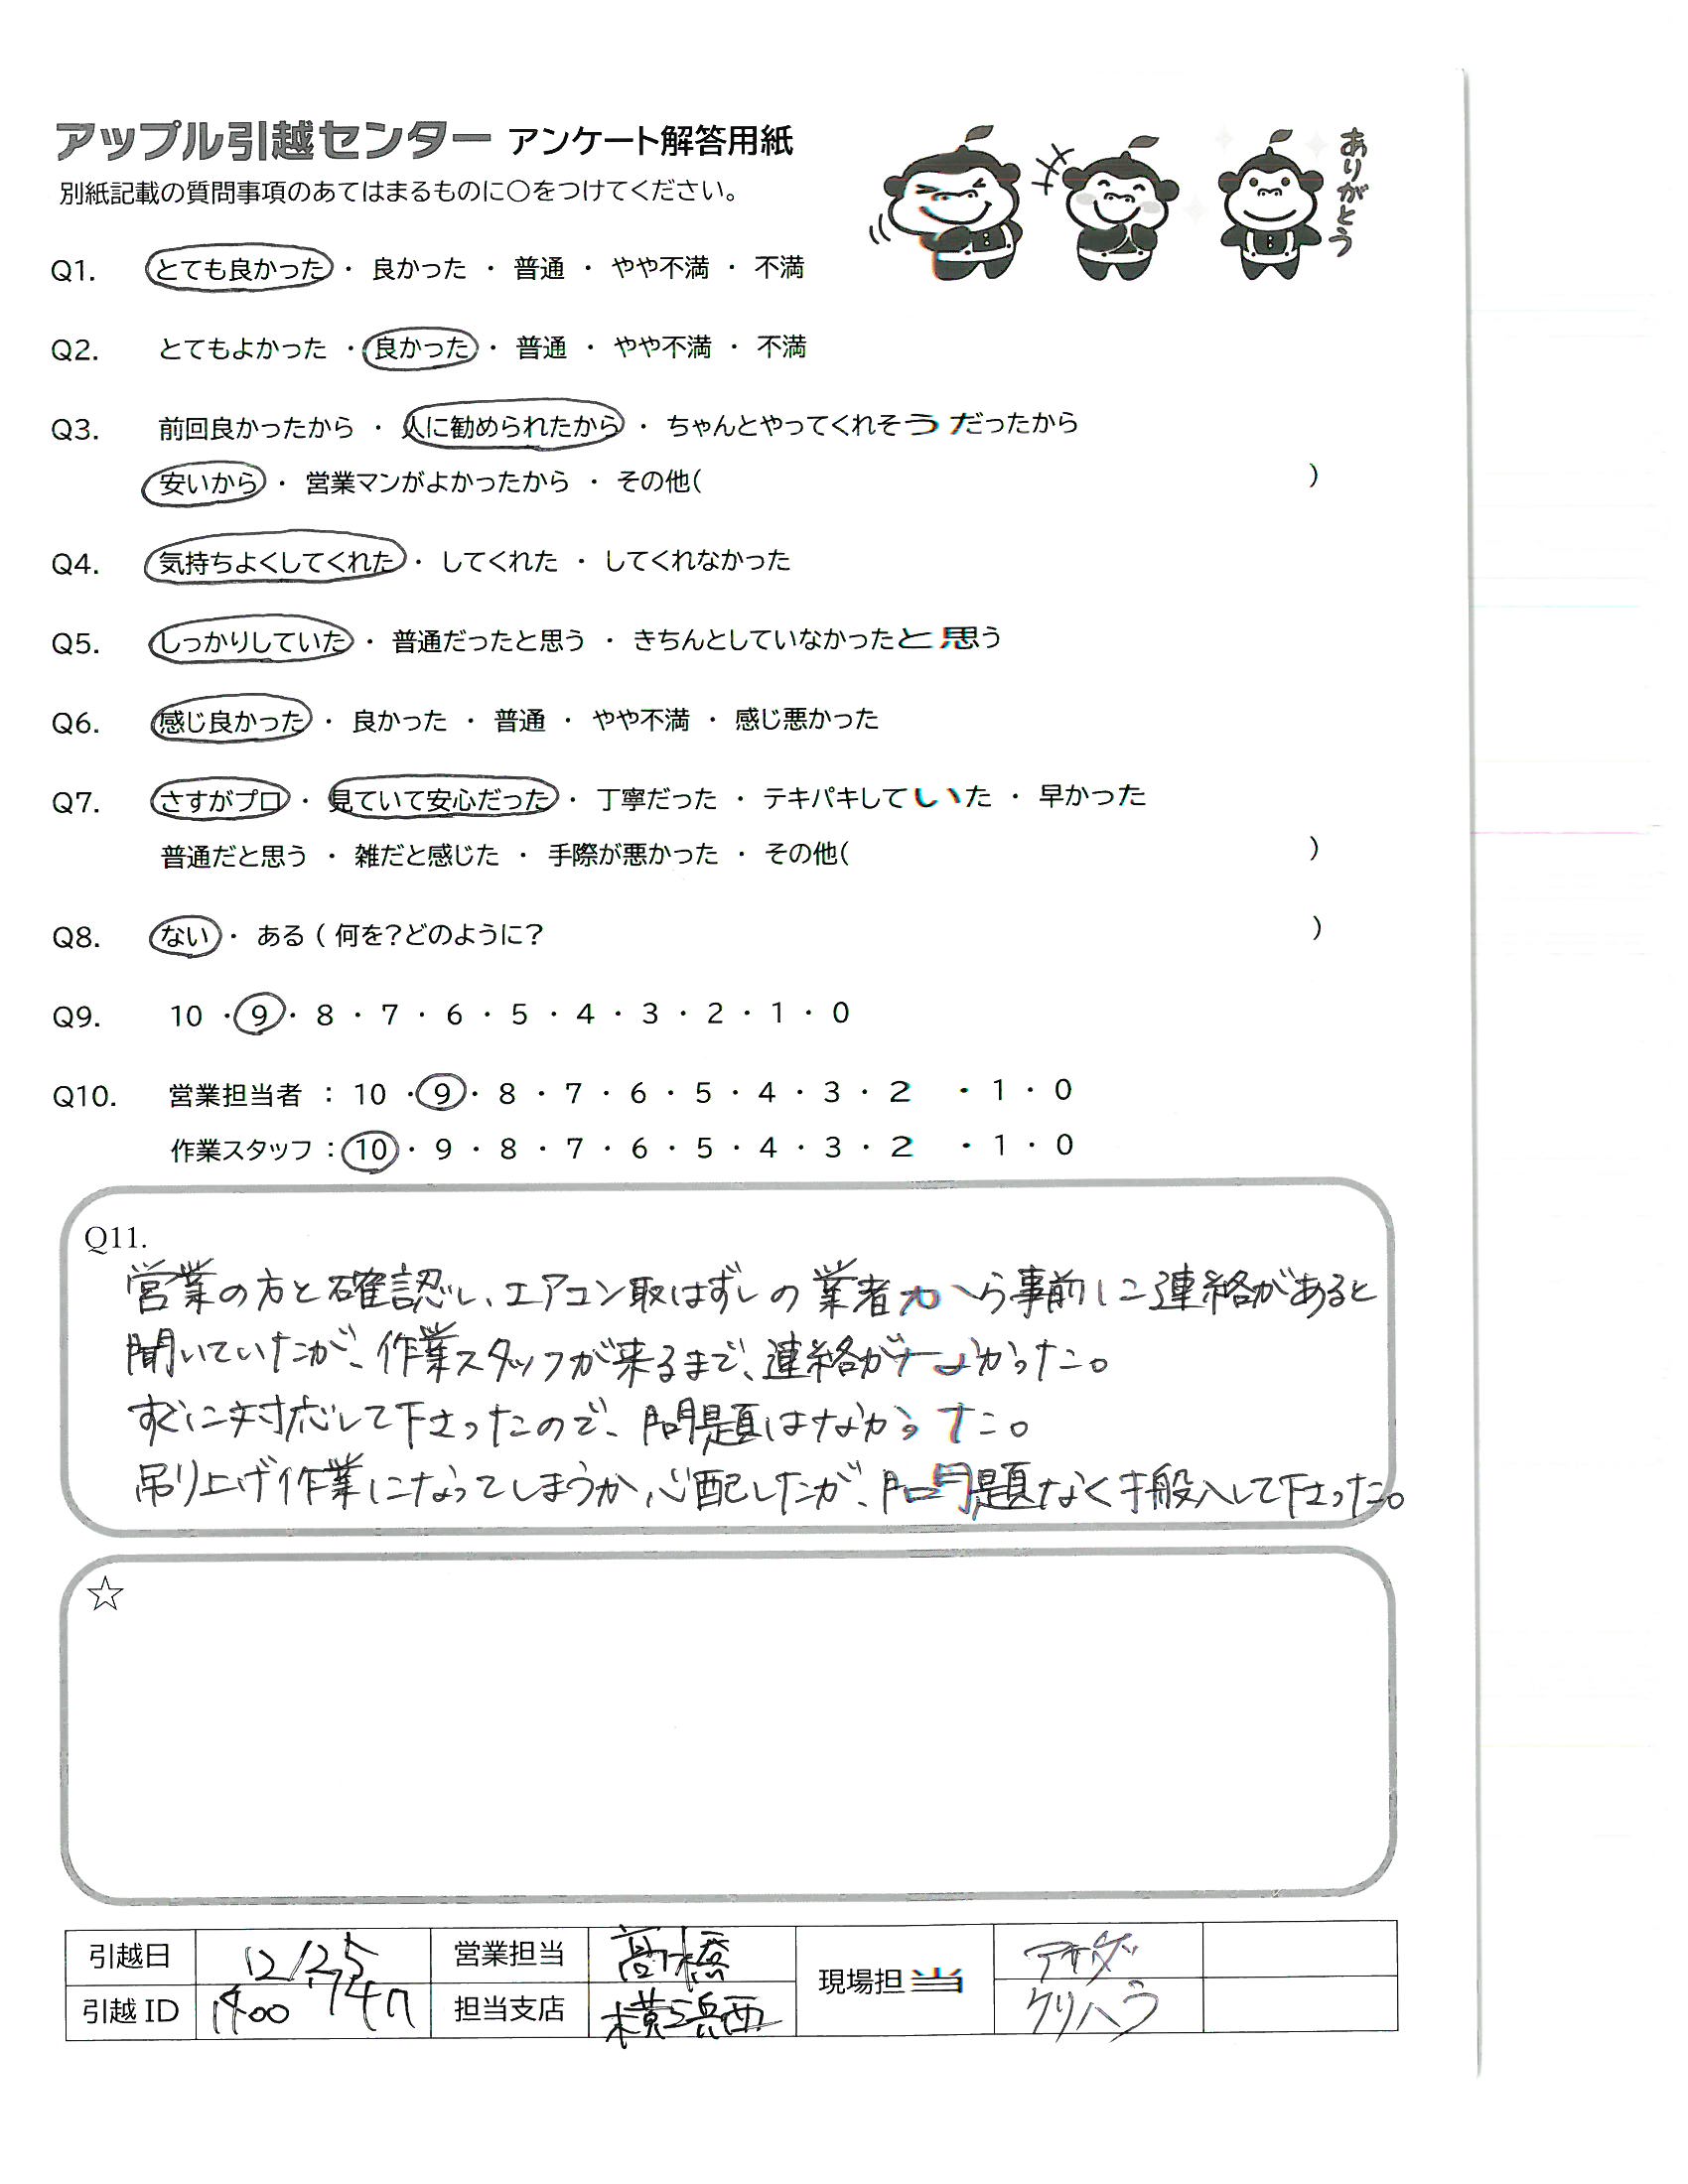 アップル引越センター アンケート解答用紙
別紙記載の質問事項のあてはまるものに○をつけてください。
ありがとう
Q1. とても良かった ・ 良かった ・ 普通 ・ やや不満 ・ 不満
Q2. とてもよかった ・ 良かった ・ 普通 ・ やや不満 ・ 不満
Q3. 前回良かったから ・ 人に勧められたから ・ ちゃんとやってくれそうだったから
安いから ・ 営業マンがよかったから ・ その他( )
Q4. 気持ちよくしてくれた ・ してくれた ・ してくれなかった
Q5. しっかりしていた ・ 普通だったと思う ・ きちんとしていなかったと思う
Q6. 感じ良かった ・ 良かった ・ 普通 ・ やや不満 ・ 感じ悪かった
Q7. さすがプロ ・ 見ていて安心だった ・ 丁寧だった ・ テキパキしていた ・ 早かった
普通だと思う ・ 雑だと感じた ・ 手際が悪かった ・ その他( )
Q8. ない ・ ある ( 何を?どのように? )
Q9. 10 ・ 9 ・ 8 ・ 7 ・ 6 ・ 5 ・ 4 ・ 3 ・ 2 ・ 1 ・ 0
Q10. 営業担当者 : 10 ・ 9 ・ 8 ・ 7 ・ 6 ・ 5 ・ 4 ・ 3 ・ 2 ・ 1 ・ 0
作業スタッフ : 10 ・ 9 ・ 8 ・ 7 ・ 6 ・ 5 ・ 4 ・ 3 ・ 2 ・ 1 ・ 0
Q11.
営業の方と確認し、エアコン取はずしの業者から事前に連絡があると
聞いていたが、作業スタッフが来るまで、連絡がなかった。
すぐに対応して下さったので、問題はなかった。
吊り上げ作業になってしまうか心配したが、問題なく搬入して下さった。
☆
引越日 12/25 営業担当 高橋 現場担当
引越ID 担当支店 横浜西 クリハラ